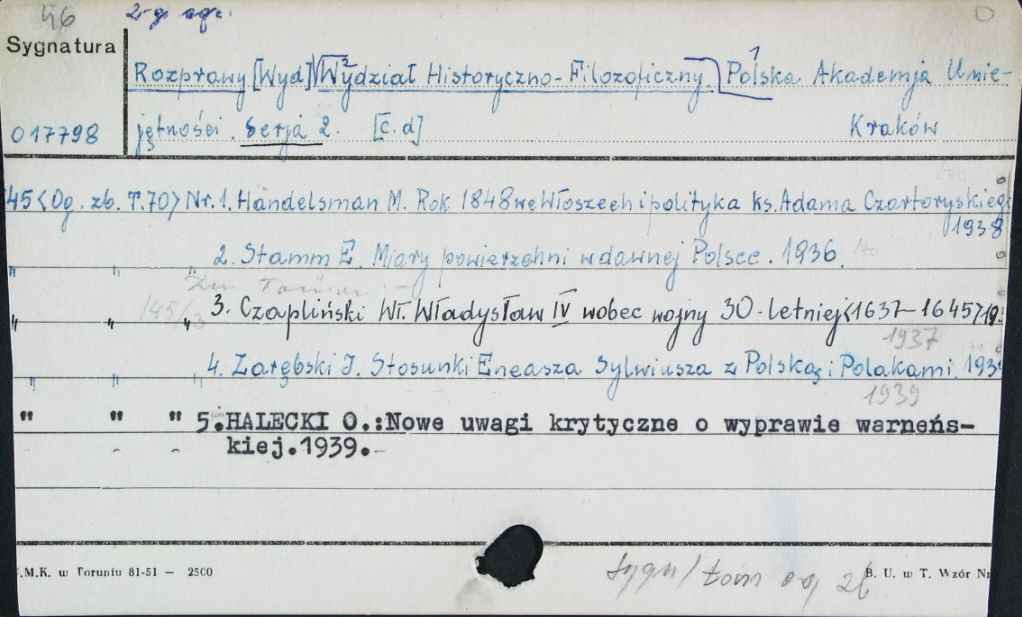 46 2-g eqz.
Sygnatura
Rozprawy [Wyd] Wydział Historyczno-Filozoficzny. Polska Akademja Umie-
017798 jętności. Serja 2. [c.d] Kraków
45 <Og. zb. T.70> Nr.1. Handelsman M. Rok 1848 we Włoszech i polityka ks. Adama Czartoryskieg
1938
" " " 2. Stamm E. Miary powierzchni w dawnej Polsce. 1936.
145/3
" " " 3. Czapliński Wł. Władysław IV wobec wojny 30-letniej <1637-1645> 19
1937
" " " 4. Zarębski I. Stosunki Eneasza Sylwiusza z Polską i Polakami. 193
1939
" " " 5. HALECKI O.: Nowe uwagi krytyczne o wyprawie warneńs-
kiej. 1939.-
.M.K. w Toruniu 81-51 — 2500
B. U. w T. Wzór Nr